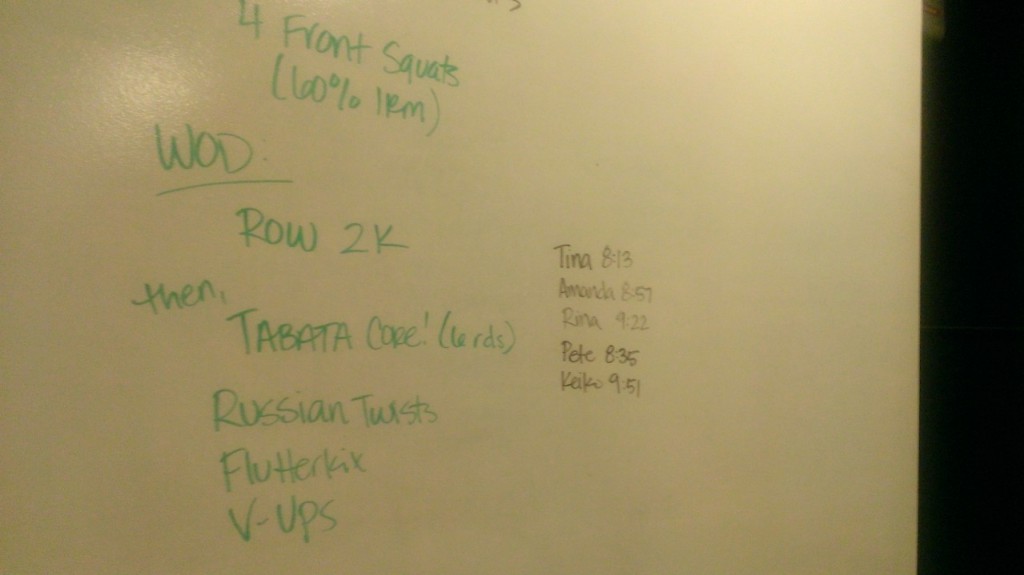 4 Front Squats
(60% 1RM)
WOD:
ROW 2K
then,
TABATA CORE! (6 rds)
Russian Twists
Flutterkix
V-Ups
Tina 8:13
Amanda 8:57
Rina 9:22
Pete 8:35
Keiko 9:51